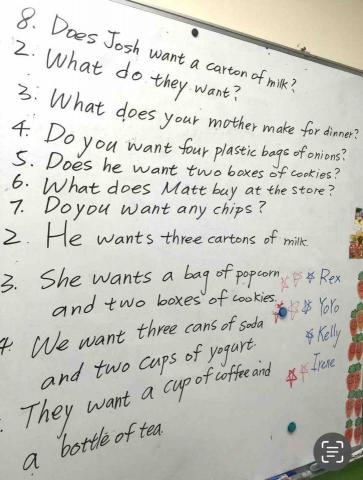 8. Does Josh want a carton of milk?
2. What do they want?
3. What does your mother make for dinner?
4. Do you want four plastic bags of onions?
5. Does he want two boxes of cookies?
6. What does Matt buy at the store?
7. Do you want any chips?
2. He wants three cartons of milk.
3. She wants a bag of popcorn
and two boxes of cookies.
4. We want three cans of soda
and two cups of yogurt.
They want a cup of coffee and
a bottle of tea.
Rex
YoYo
Kelly
Irene